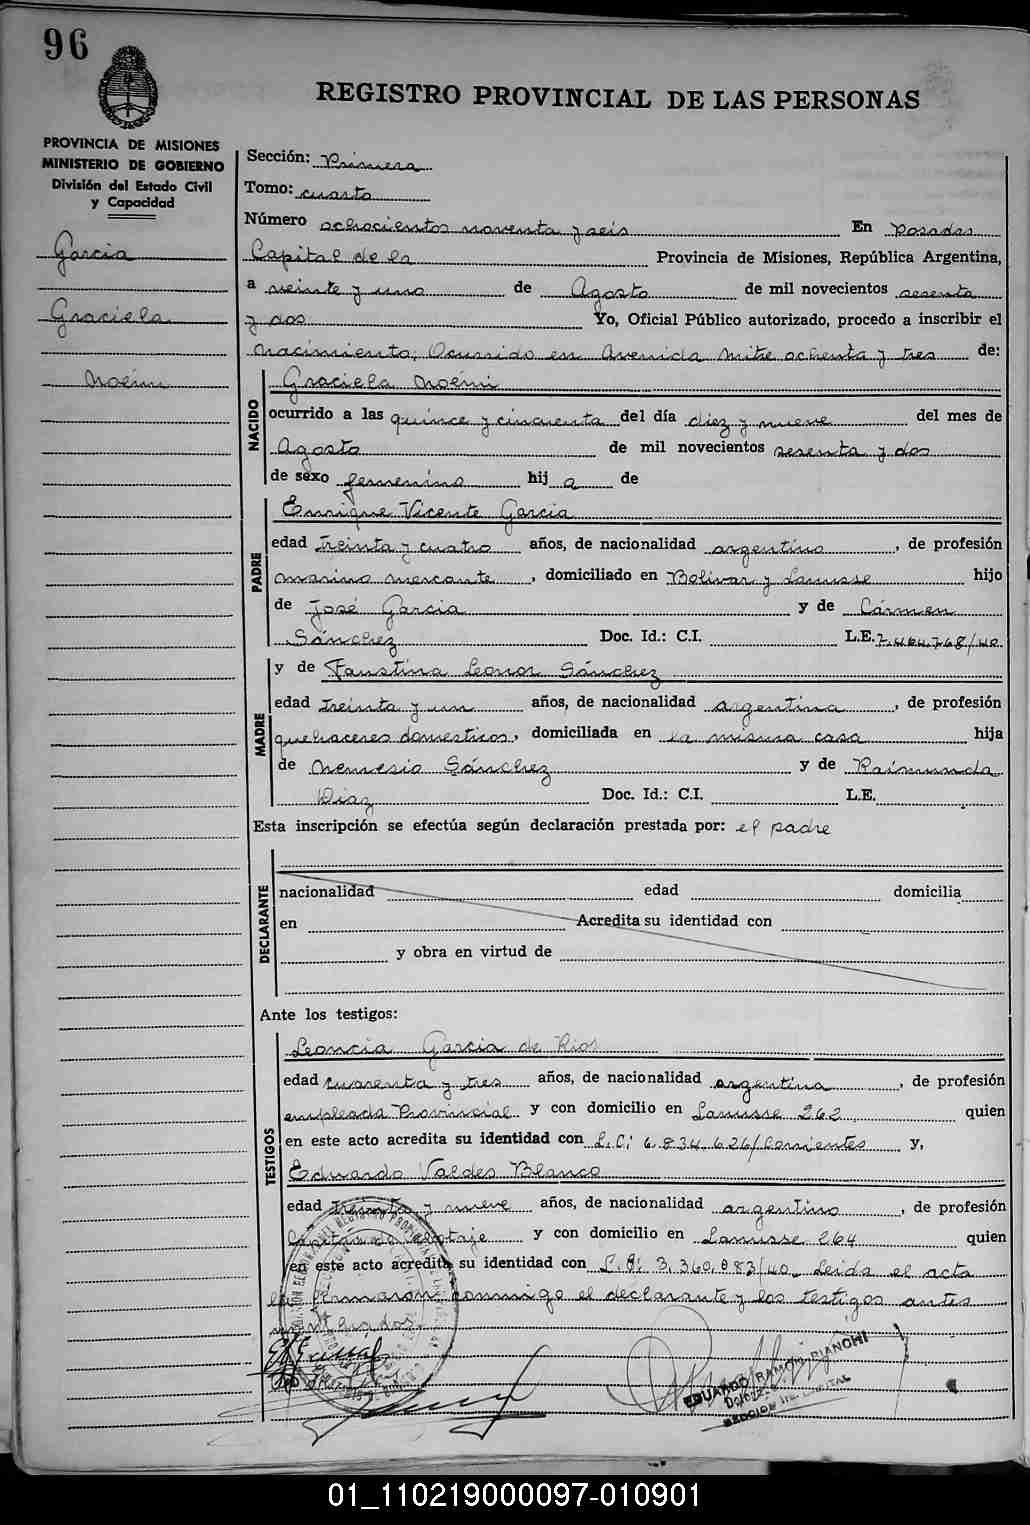 96
REGISTRO PROVINCIAL DE LAS PERSONAS
PROVINCIA DE MISIONES
MINISTERIO DE GOBIERNO
División del Estado Civil
y Capacidad
Garcia
Graciela
Noémi
Sección: Primera
Tomo: cuarto
Número ochocientos noventa y seis En Posadas
Capital de la Provincia de Misiones, República Argentina,
a veinte y uno de Agosto de mil novecientos sesenta
y dos Yo, Oficial Público autorizado, procedo a inscribir el
Nacimiento; Ocurrido en Avenida Mitre ochenta y tres de:
NACIDO
Graciela Noémi
ocurrido a las quince y cincuenta del día diez y nueve del mes de
Agosto de mil novecientos sesenta y dos
de sexo femenino hij a de
PADRE
Enrique Vicente Garcia
edad treinta y cuatro años, de nacionalidad argentino, de profesión
marino mercante, domiciliado en Bolivar y Lanusse hijo
de José Garcia y de Cármen
Sánchez Doc. Id.: C.I. L.E. 7.464.768/40
MADRE
y de Faustina Leonor Sánchez
edad treinta y un años, de nacionalidad argentina, de profesión
quehaceres domesticos, domiciliada en la misma casa hija
de Nemesio Sánchez y de Raimunda
Diaz Doc. Id.: C.I. L.E.
Esta inscripción se efectúa según declaración prestada por: el padre
DECLARANTE
nacionalidad edad domicilia
en Acredita su identidad con
y obra en virtud de
Ante los testigos:
TESTIGOS
Leoncia Garcia de Rios
edad cuarenta y tres años, de nacionalidad argentina, de profesión
empleada Provincial y con domicilio en Lanusse 262 quien
en este acto acredita su identidad con L.C: 6.834.626/Corrientes y,
Eduardo Valdes Blanco
edad treinta y nueve años, de nacionalidad argentino, de profesión
Capitan de cabotaje y con domicilio en Lanusse 264 quien
en este acto acredita su identidad con L.E: 3.360.883/40 Leida el acta
la firmaron conmigo el declarante y los testigos antes
EDUARDO RAMON BIANCHI
01_110219000097-010901